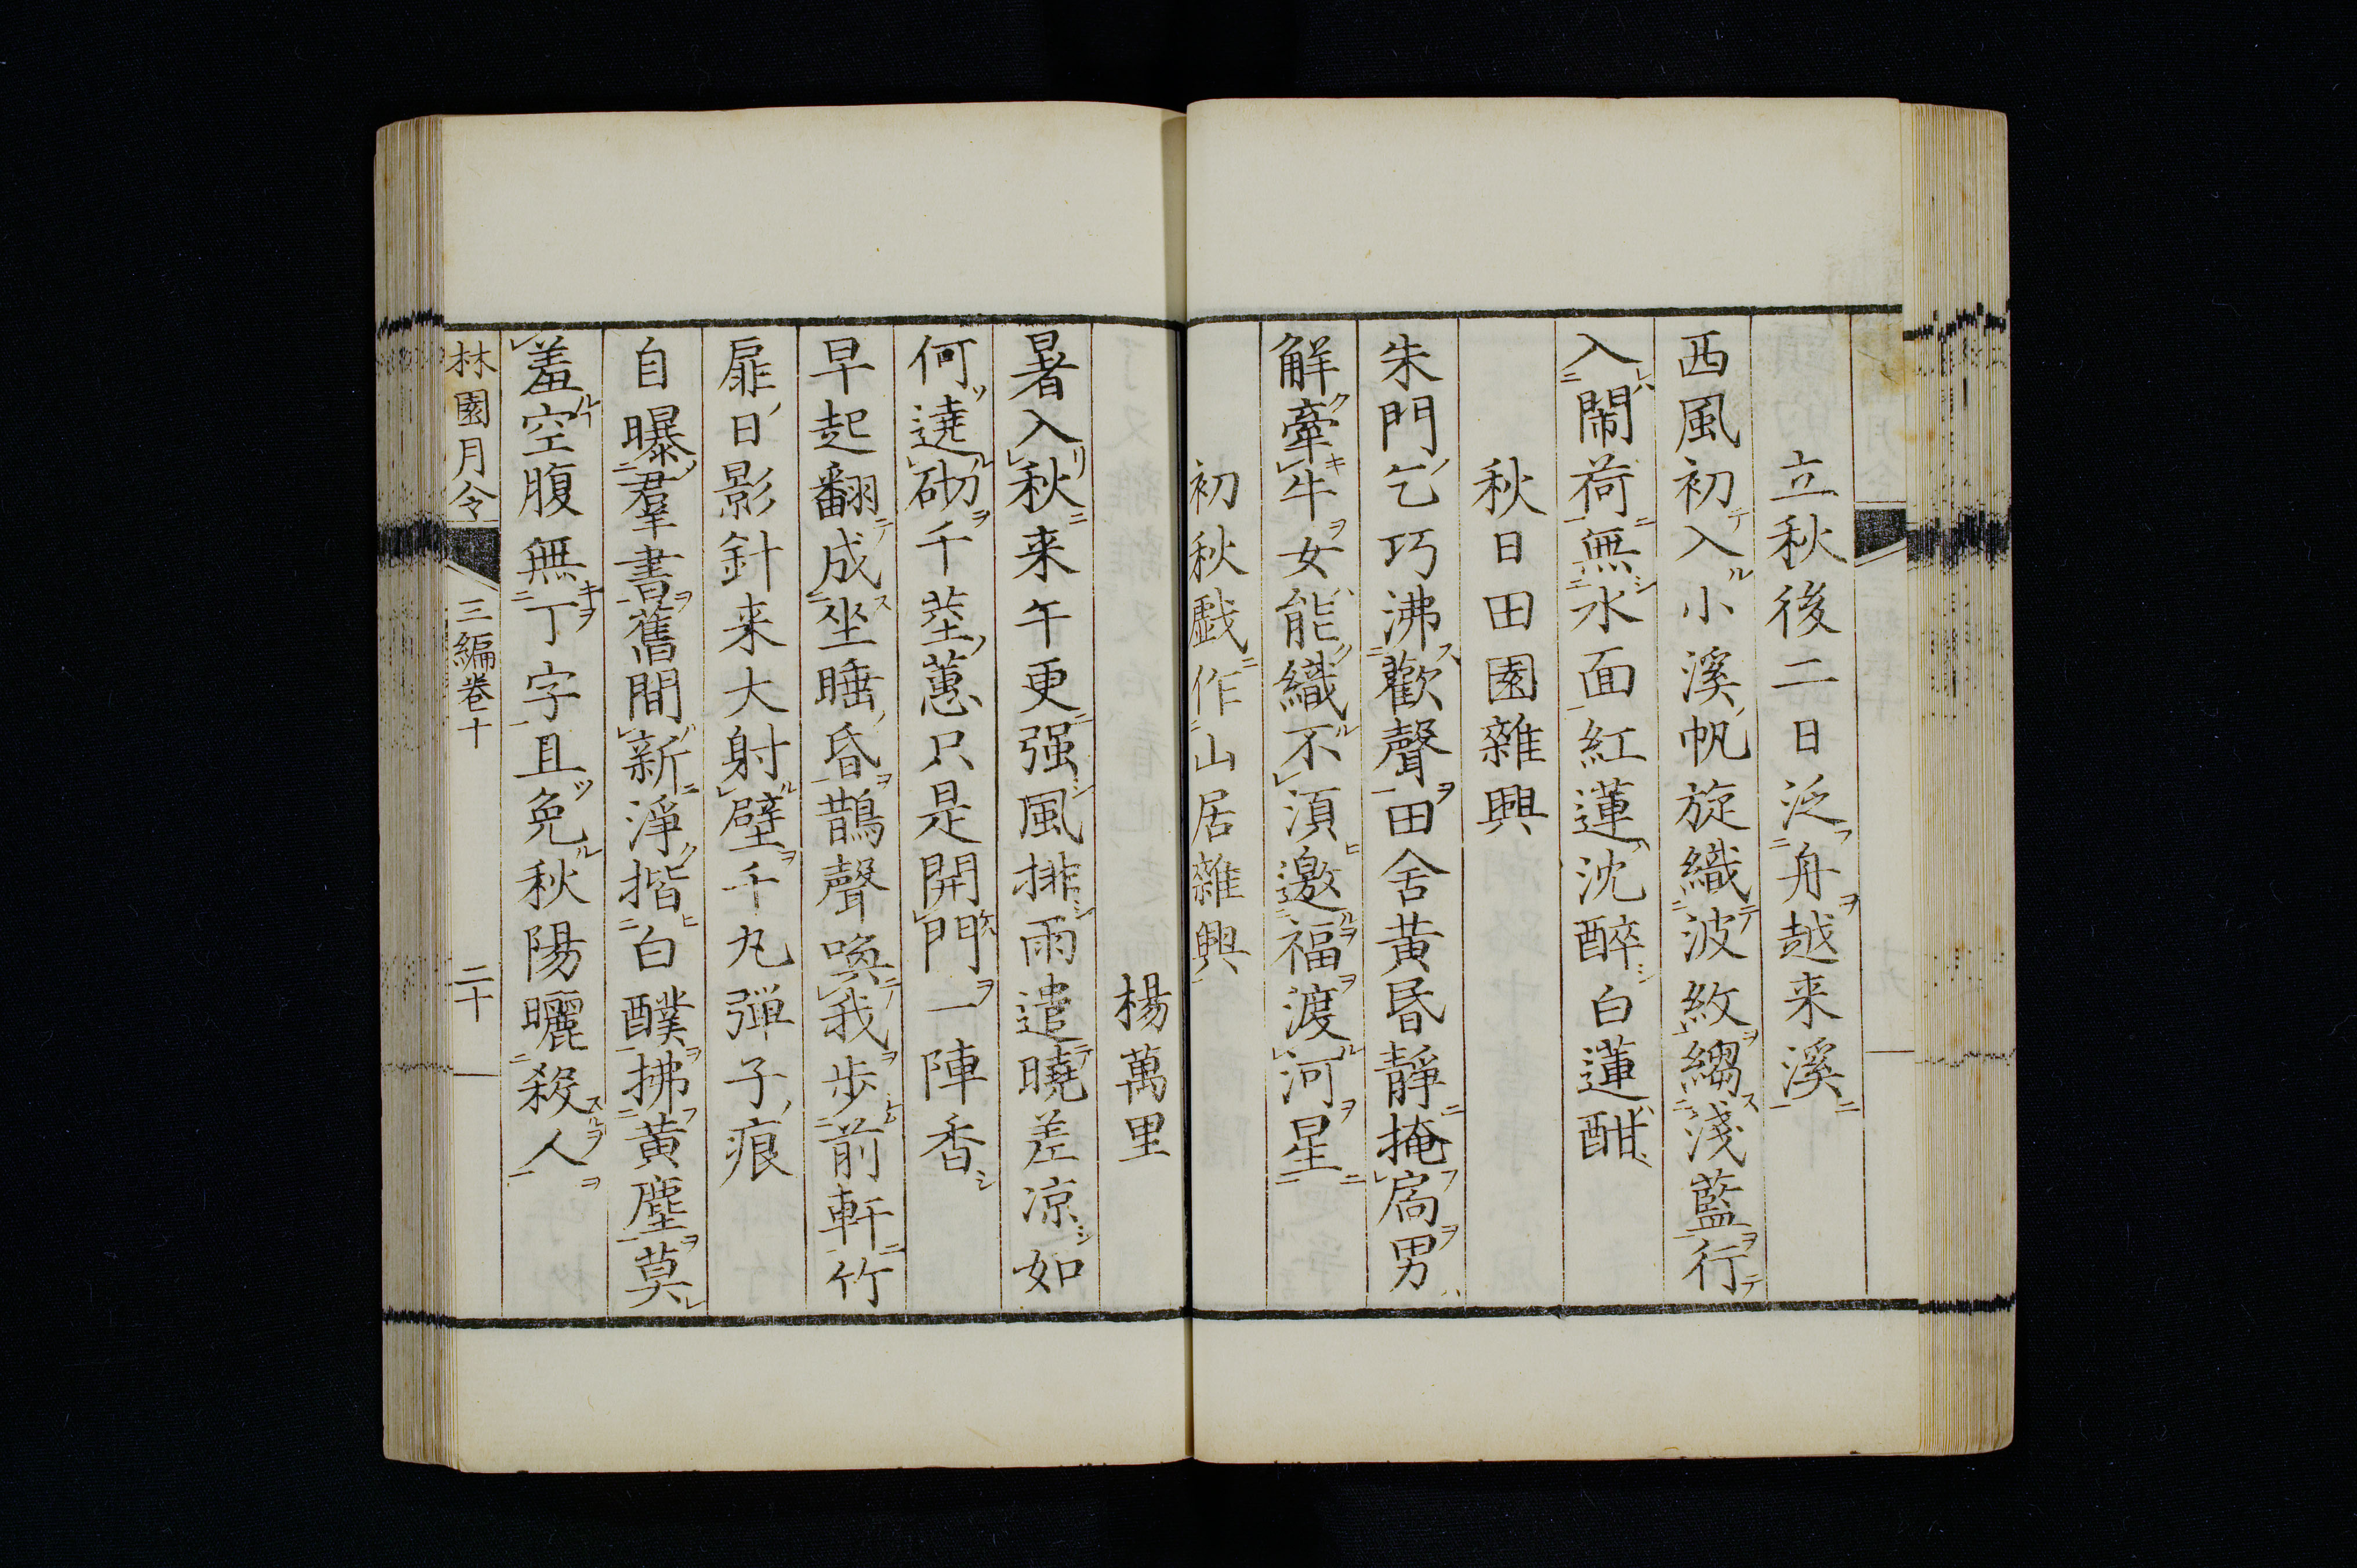 立秋後二日泛舟越来溪
西風初入小溪帆旋織波紋縐淺藍行
入鬧荷無水面紅蓮沈醉白蓮酣
秋日田園雜興
朱門乞巧沸歡聲田舍黃昏靜掩扃男
解牽牛女能織不須邀福渡河星
初秋戲作山居雜興
楊萬里
暑入秋来午更强風排雨遣曉差凉如
何遶砌千莖蕙只是開門一陣香
早起翻成坐睡昏鵲聲喚我步前軒竹
扉日影針来大射壁千丸彈子痕
自曝羣書舊間新淨揩白醭拂黃塵莫
羞空腹無丁字且免秋陽曬殺人
林園月令 三編卷十 二十